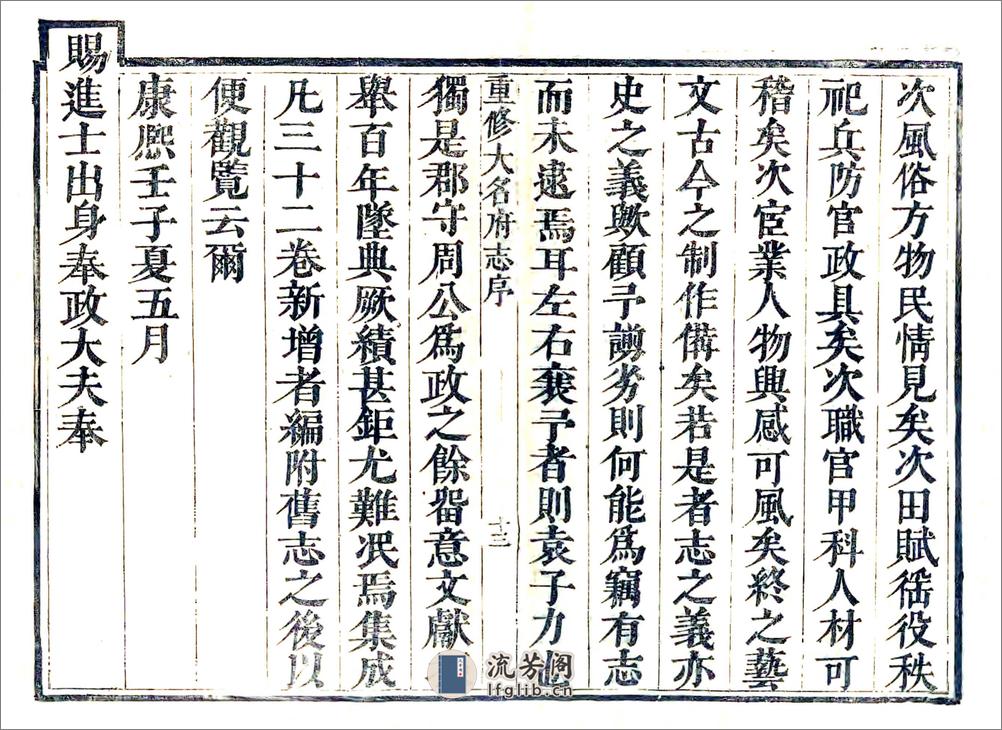 次風俗方物民情見矣次田賦徭役秩
祀兵防官政具矣次職官甲科人材可
稽矣次宦業人物興感可風矣終之藝
文古今之制作備矣若是者志之義亦
史之義歟顧予譾劣則何能爲竊有志
而未逮焉耳左右襄予者則袁子力也
重修大名府志序
十三
獨是郡守周公爲政之餘畱意文獻
舉百年墜典厥績甚鉅尤難冺焉集成
凡三十二卷新增者編附舊志之後以
便觀覽云爾
康熙壬子夏五月
賜進士出身奉政大夫奉
流芳阁
lfglib.cn